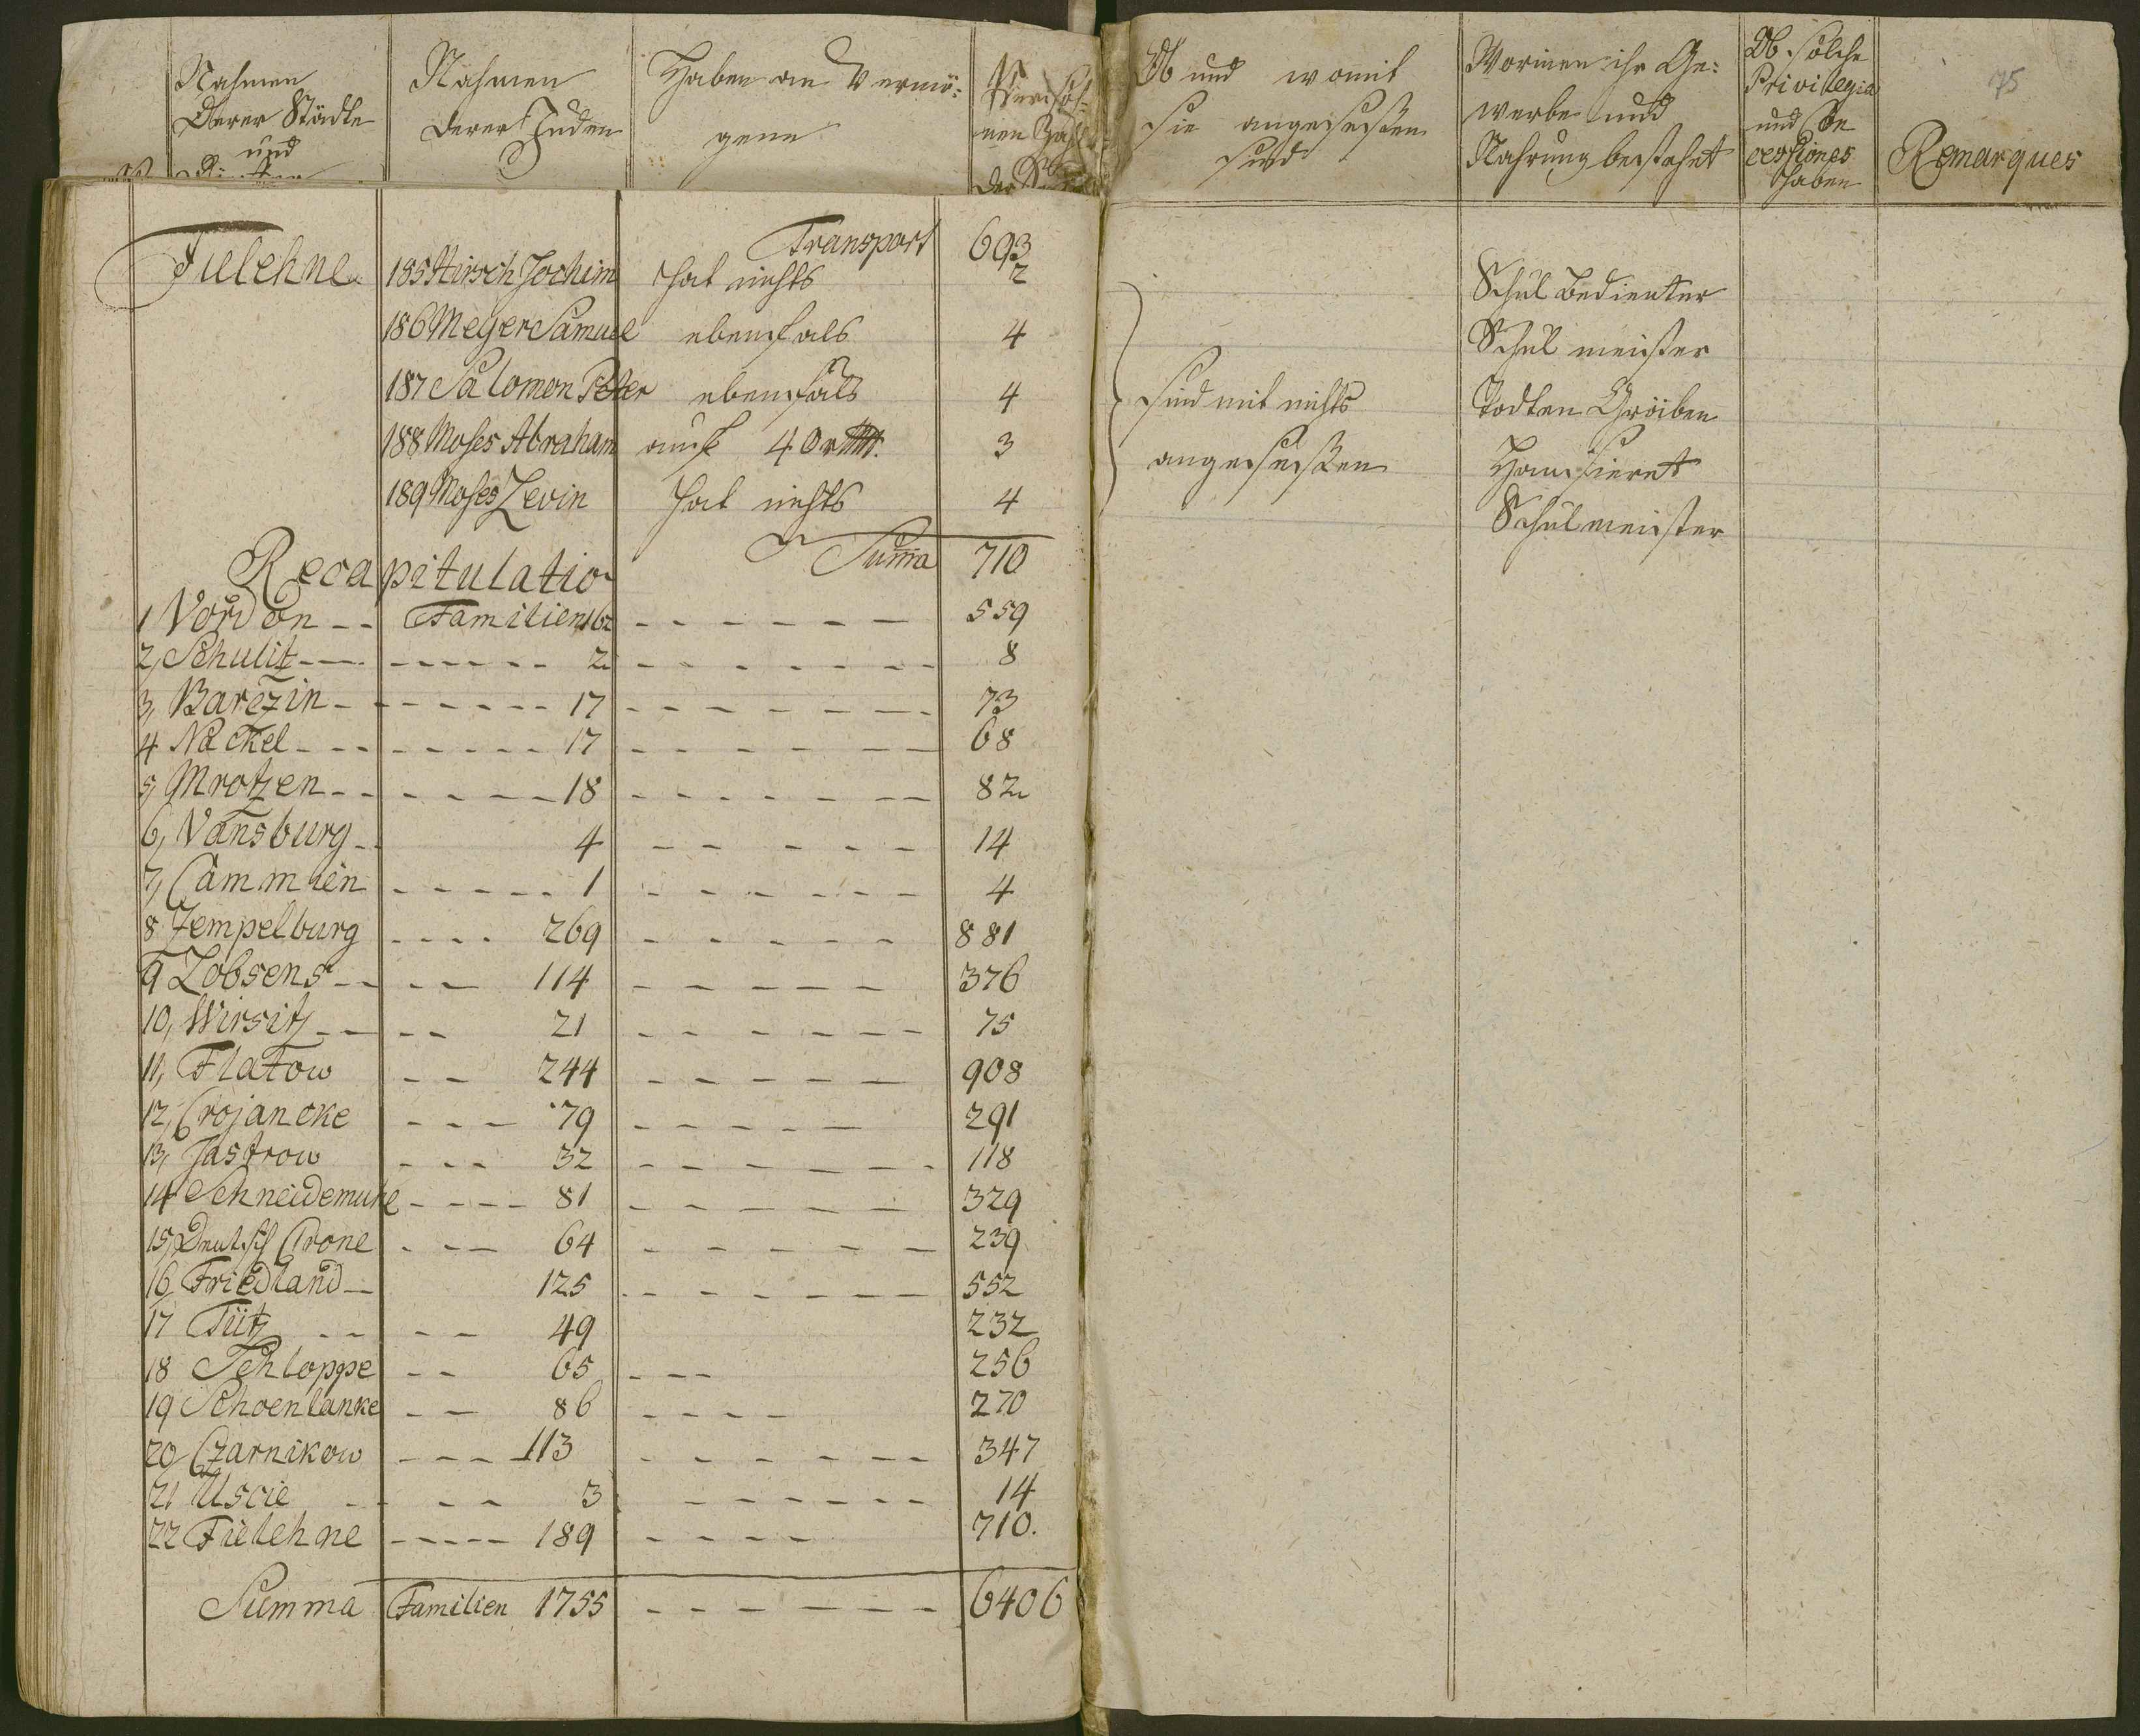 Nahmen
Derer Städte
und
Nahmen
derer Juden
Haben an Vermö-
gen
Persoh-
nen Zahl
Ob und womit
sie angesessen
sind
Worinnen ihr Ge-
werbe und
Nahrung bestehet
Ob solche
Privilegia
und Con
cessiones
haben
75
Remarques
Transport 693
Fielehne 185 Hirsch Jochim hat nichts 2 Schul Bedienter
186 Meyer Samuel ebenfals 4 Schul meister
187 Salomon Peter ebenfals 4 sind mit nichts Todten Gräber
188 Moses Abraham auch 40 3 angesessen Hausieret
189 Moses Levin hat nichts 4 Schulmeister
Summa 710
Recapitulatio
1 Vordon -- Familien 162 ------ 559
2, Schulitz -- ------ 2 ------ 8
3, Barczin - ------ 17 ------ 73
4 Nackel --- ----- 17 ------ 68
5, Mrotzen -- ----- 18 ------ 82
6, Vansburg -- 4 ------ 14
7, Cammien ----- 1 ------ 4
8 Zempelburg ---- 269 ------ 881
9 Lobsens -- -- 114 ----- 376
10, Wirsitz -- -- 21 ------ 75
11, Flatow -- 244 ------ 908
12, Crojancke --- 79 ----- 291
13, Jastrow --- 32 ------ 118
14 Schneidemuhl ---- 81 ------ 329
15, Deutsch Crone --- 64 ------ 239
16, Friedland -- 125 ------ 552
17 Tütz -- -- 49 232
18 Schloppe -- 65 --- 256
19 Schoenlanke -- 86 ---- 270
20, Czarnikow --- 113 ------ 347
21 Uscie -- -- 3 ------ 14
22 Fielehne ----- 189 ---- 710.
Summa Familien 1755 ------ 6406